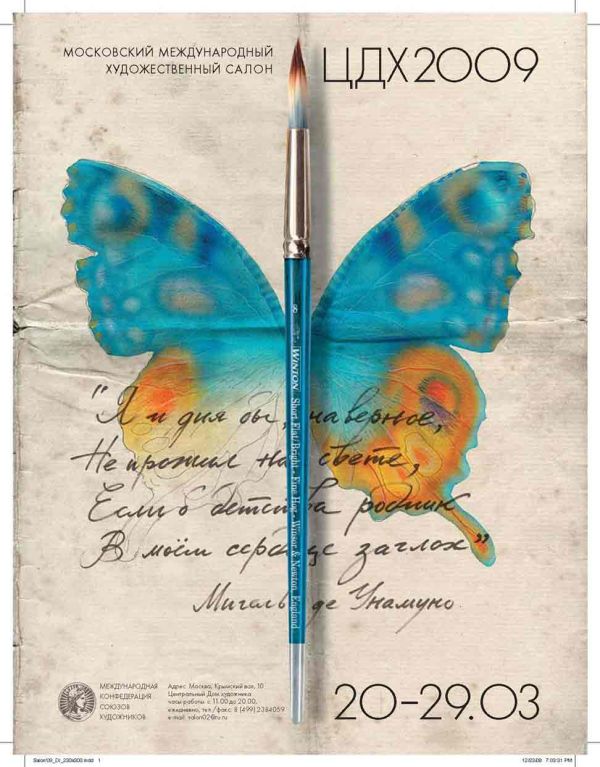 МОСКОВСКИЙ МЕЖДУНАРОДНЫЙ
ХУДОЖЕСТВЕННЫЙ САЛОН
ЦДХ2009
8
WINTON
Short Flat/Bright • Fine Hog • Winsor & Newton, England
"Я и дня бы, наверное,
Не прожил на свете,
Если б детства родник
В моём сердце заглох"
Мигель де Унамуно
МЕЖДУНАРОДНАЯ
КОНФЕДЕРАЦИЯ
СОЮЗОВ
ХУДОЖНИКОВ
Адрес: Москва, Крымский вал, 10
Центральный Дом художника
часы работы: с 11.00 до 20.00,
ежедневно, тел./факс: 8 (499) 2384059
e-mail: salon02@ru.ru
20–29.03
Salon'09_Dr_230x300.indd 1
12/23/08 7:03:31 PM